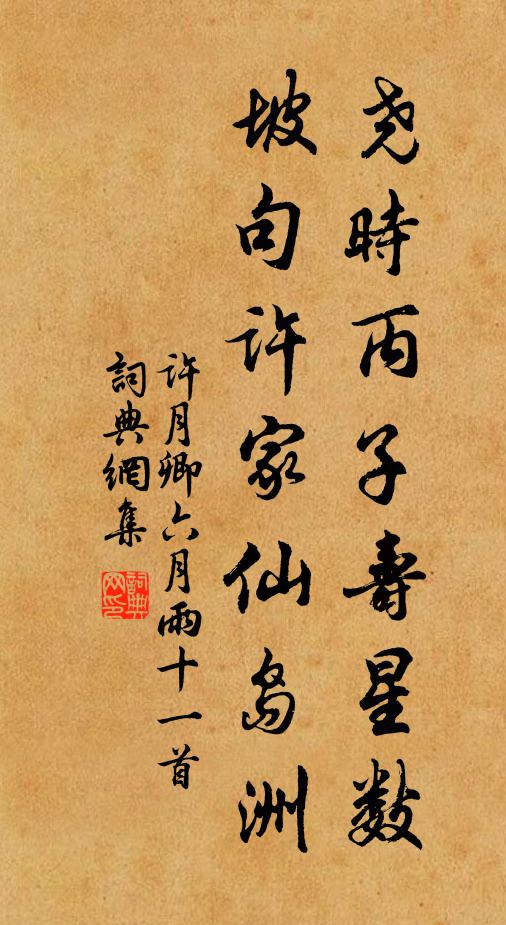 尧時丙子壽星數
坡句許家仙島洲
許月卿六月雨十一首
詞典網集
詞典
网印